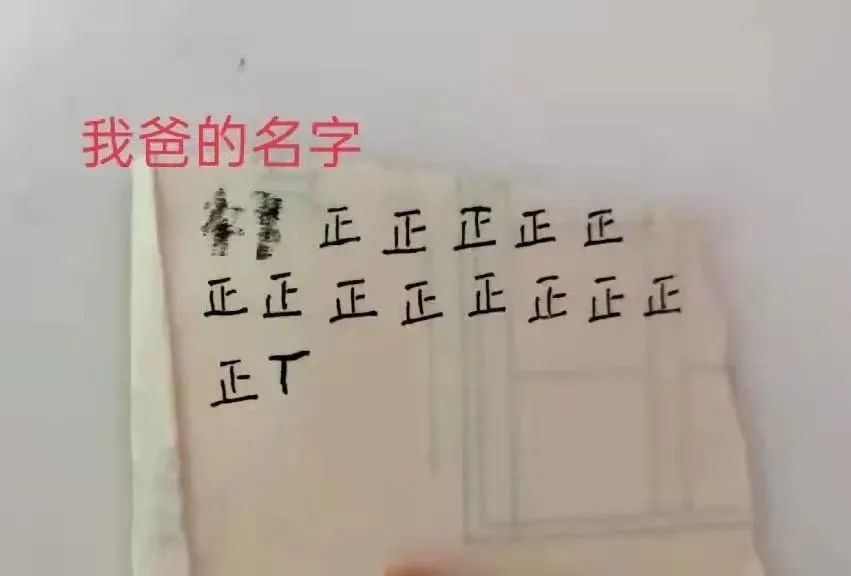 我爸的名字
正正正正正
正正正正正正正正
正丅